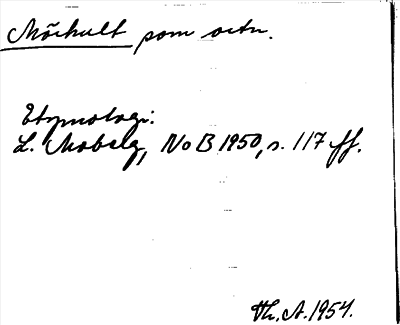 Mörhult som ortn.
Etymologi:
L. Moberg, NoB 1950, s. 117 ff.
Th. A. 1954.